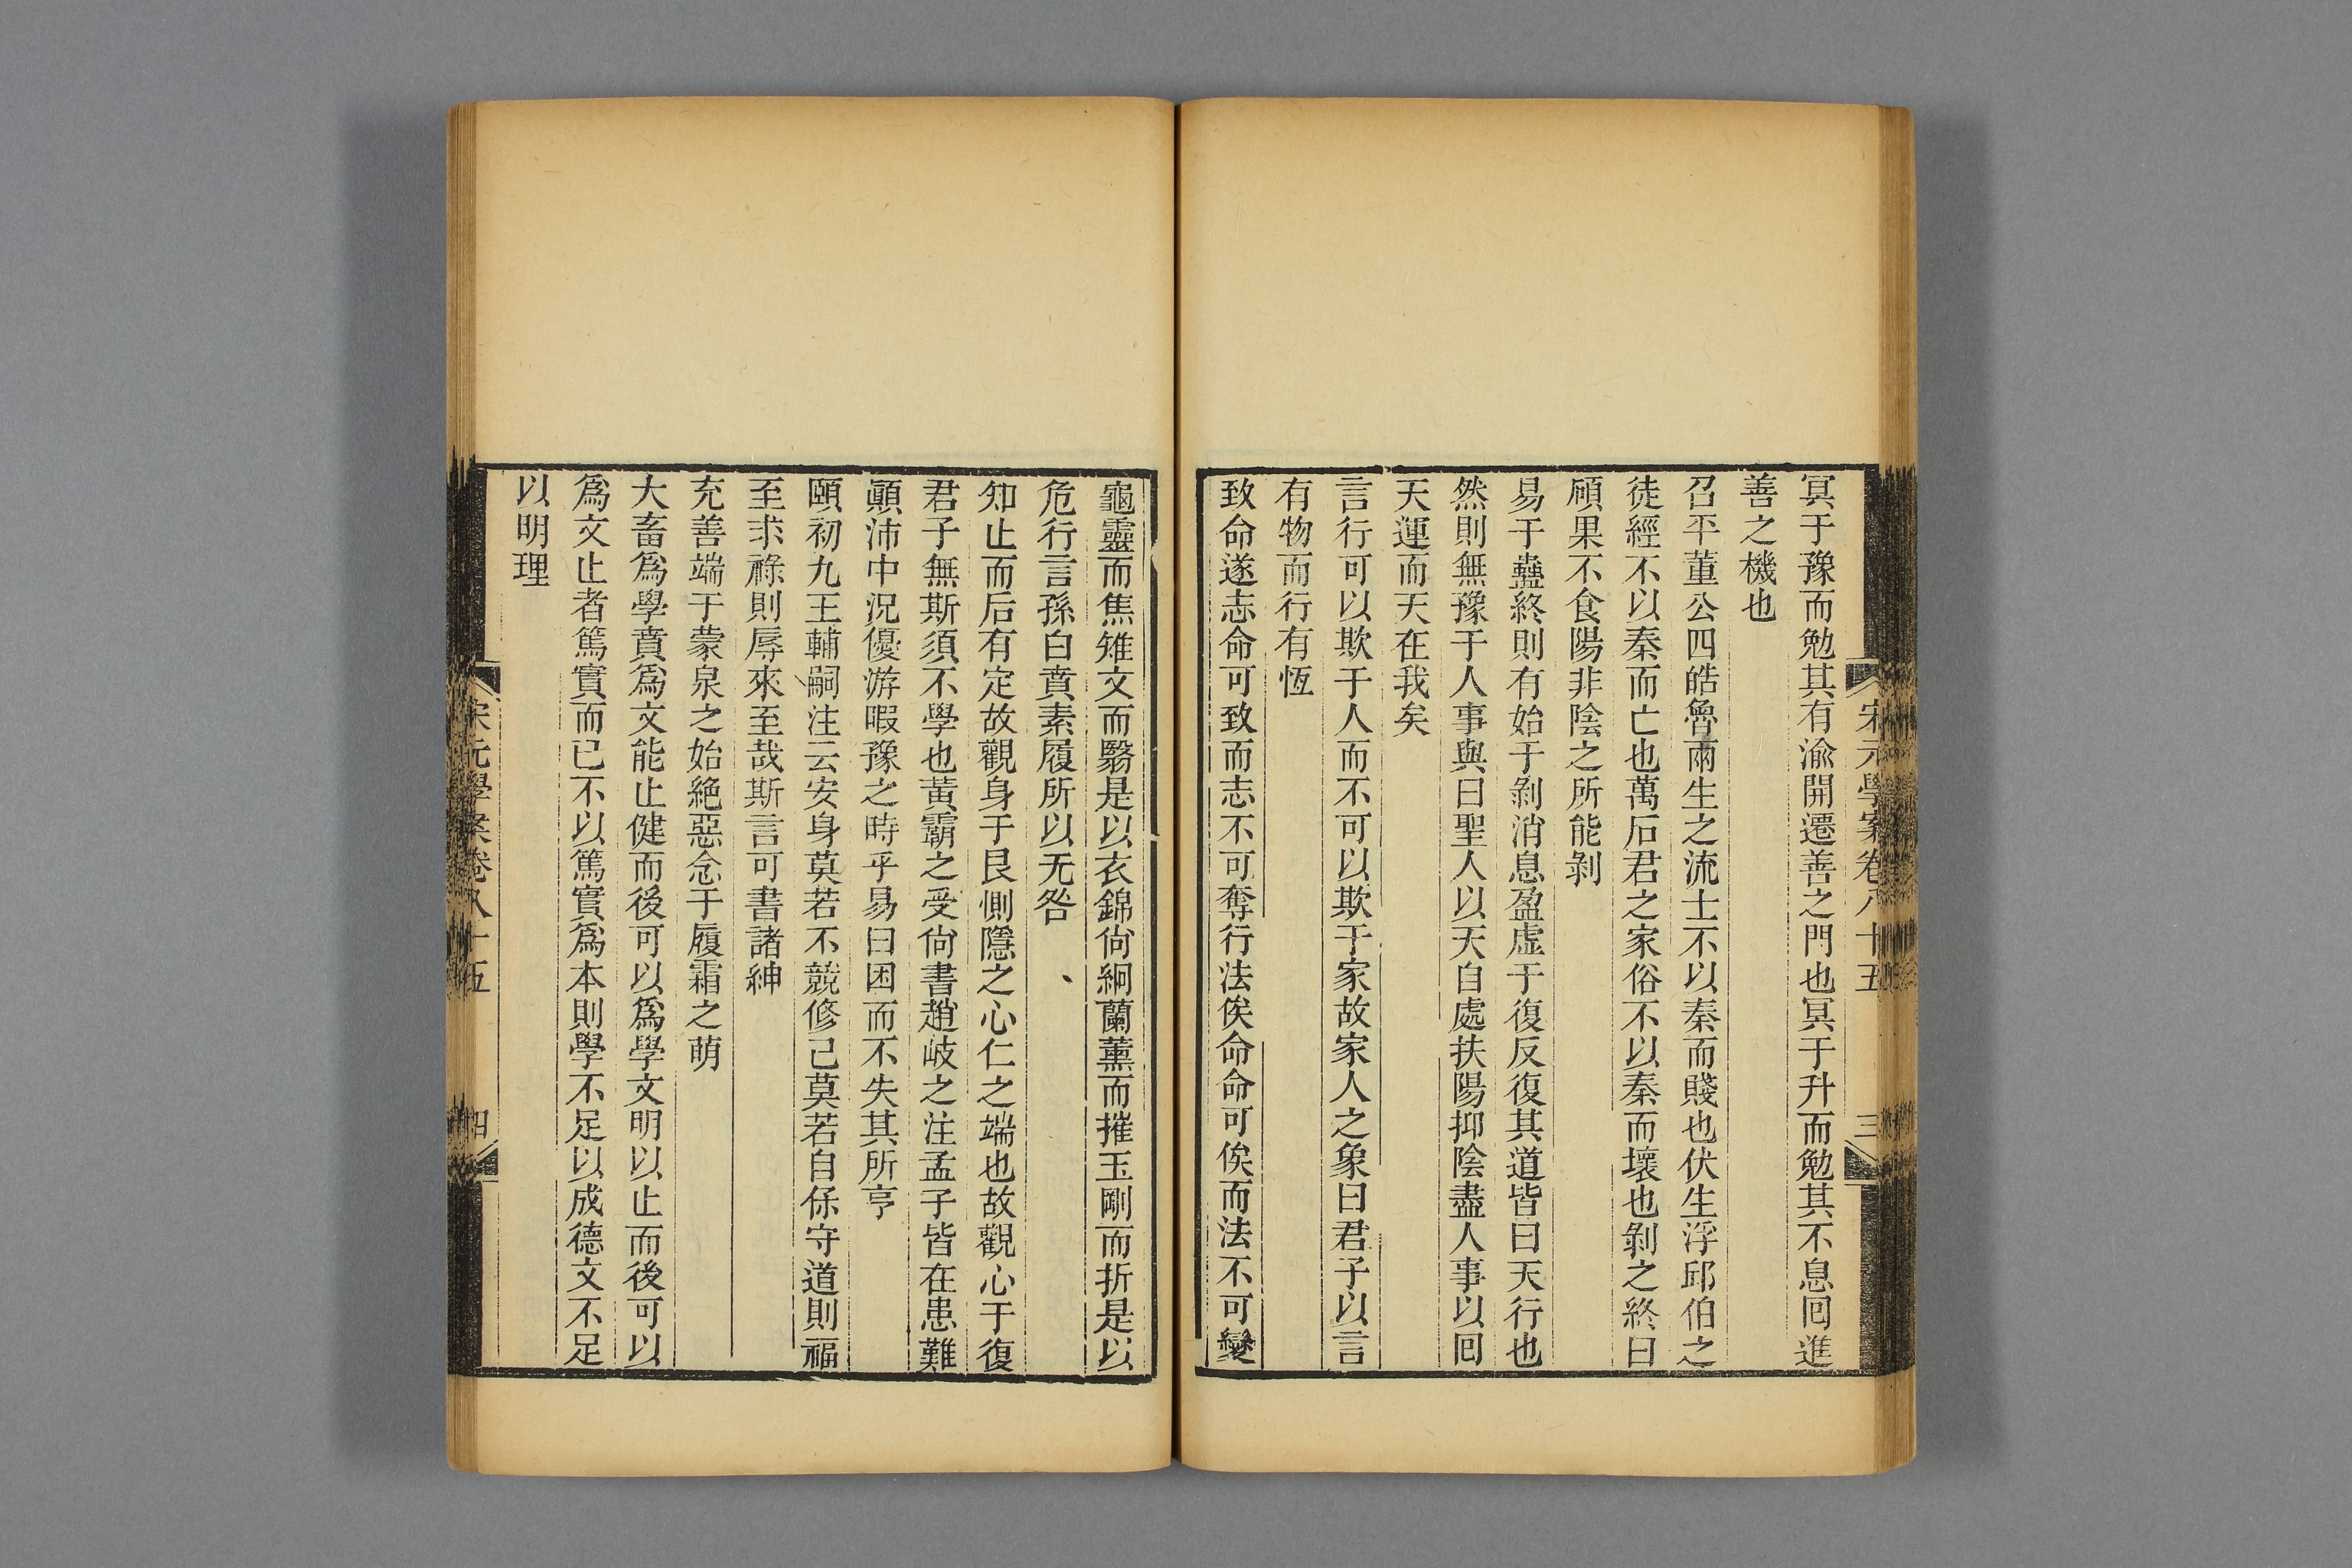 宋元學案卷八十五
三
冥于豫而勉其有渝開遷善之門也冥于升而勉其不息囘進
善之機也
召平董公四皓魯兩生之流士不以秦而賤也伏生浮邱伯之
徒經不以秦而亡也萬石君之家俗不以秦而壞也剝之終曰
碩果不食陽非陰之所能剝
易于蠱終則有始于剝消息盈虛于復反復其道皆曰天行也
然則無豫于人事與曰聖人以天自處扶陽抑陰盡人事以囘
天運而天在我矣
言行可以欺于人而不可以欺于家故家人之象曰君子以言
有物而行有恆
致命遂志命可致而志不可奪行法俟命命可俟而法不可變
龜靈而焦雉文而翳是以衣錦尙絅蘭薰而摧玉剛而折是以
危行言孫白賁素履所以无咎
知止而后有定故觀身于艮惻隱之心仁之端也故觀心于復
君子無斯須不學也黃霸之受尙書趙岐之注孟子皆在患難
顚沛中況優游暇豫之時乎易曰困而不失其所亨
頤初九王輔嗣注云安身莫若不競修己莫若自保守道則福
至求祿則辱來至哉斯言可書諸紳
充善端于蒙泉之始絶惡念于履霜之萌
大畜爲學賁爲文能止健而後可以爲學文明以止而後可以
爲文止者篤實而已不以篤實爲本則學不足以成德文不足
以明理
宋元學案卷八十五
四